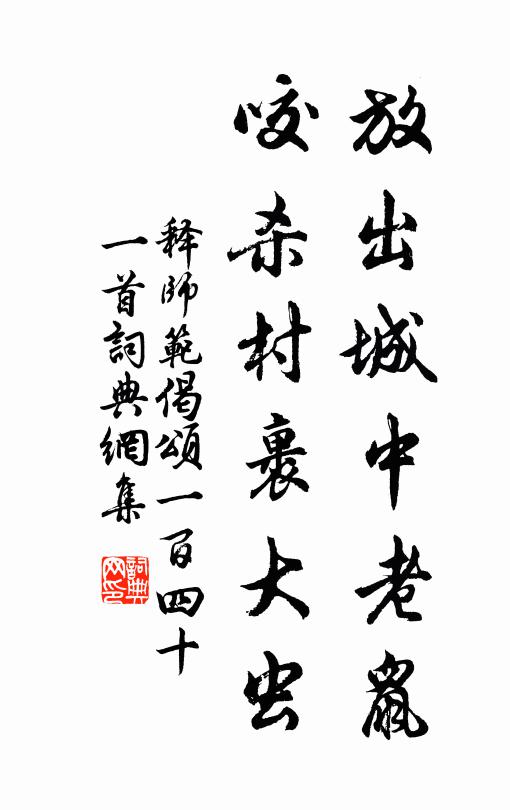 放出城中老鼠
咬杀村裹大虫
释师範偈頌一百四十
一首詞典網集
詞典网印